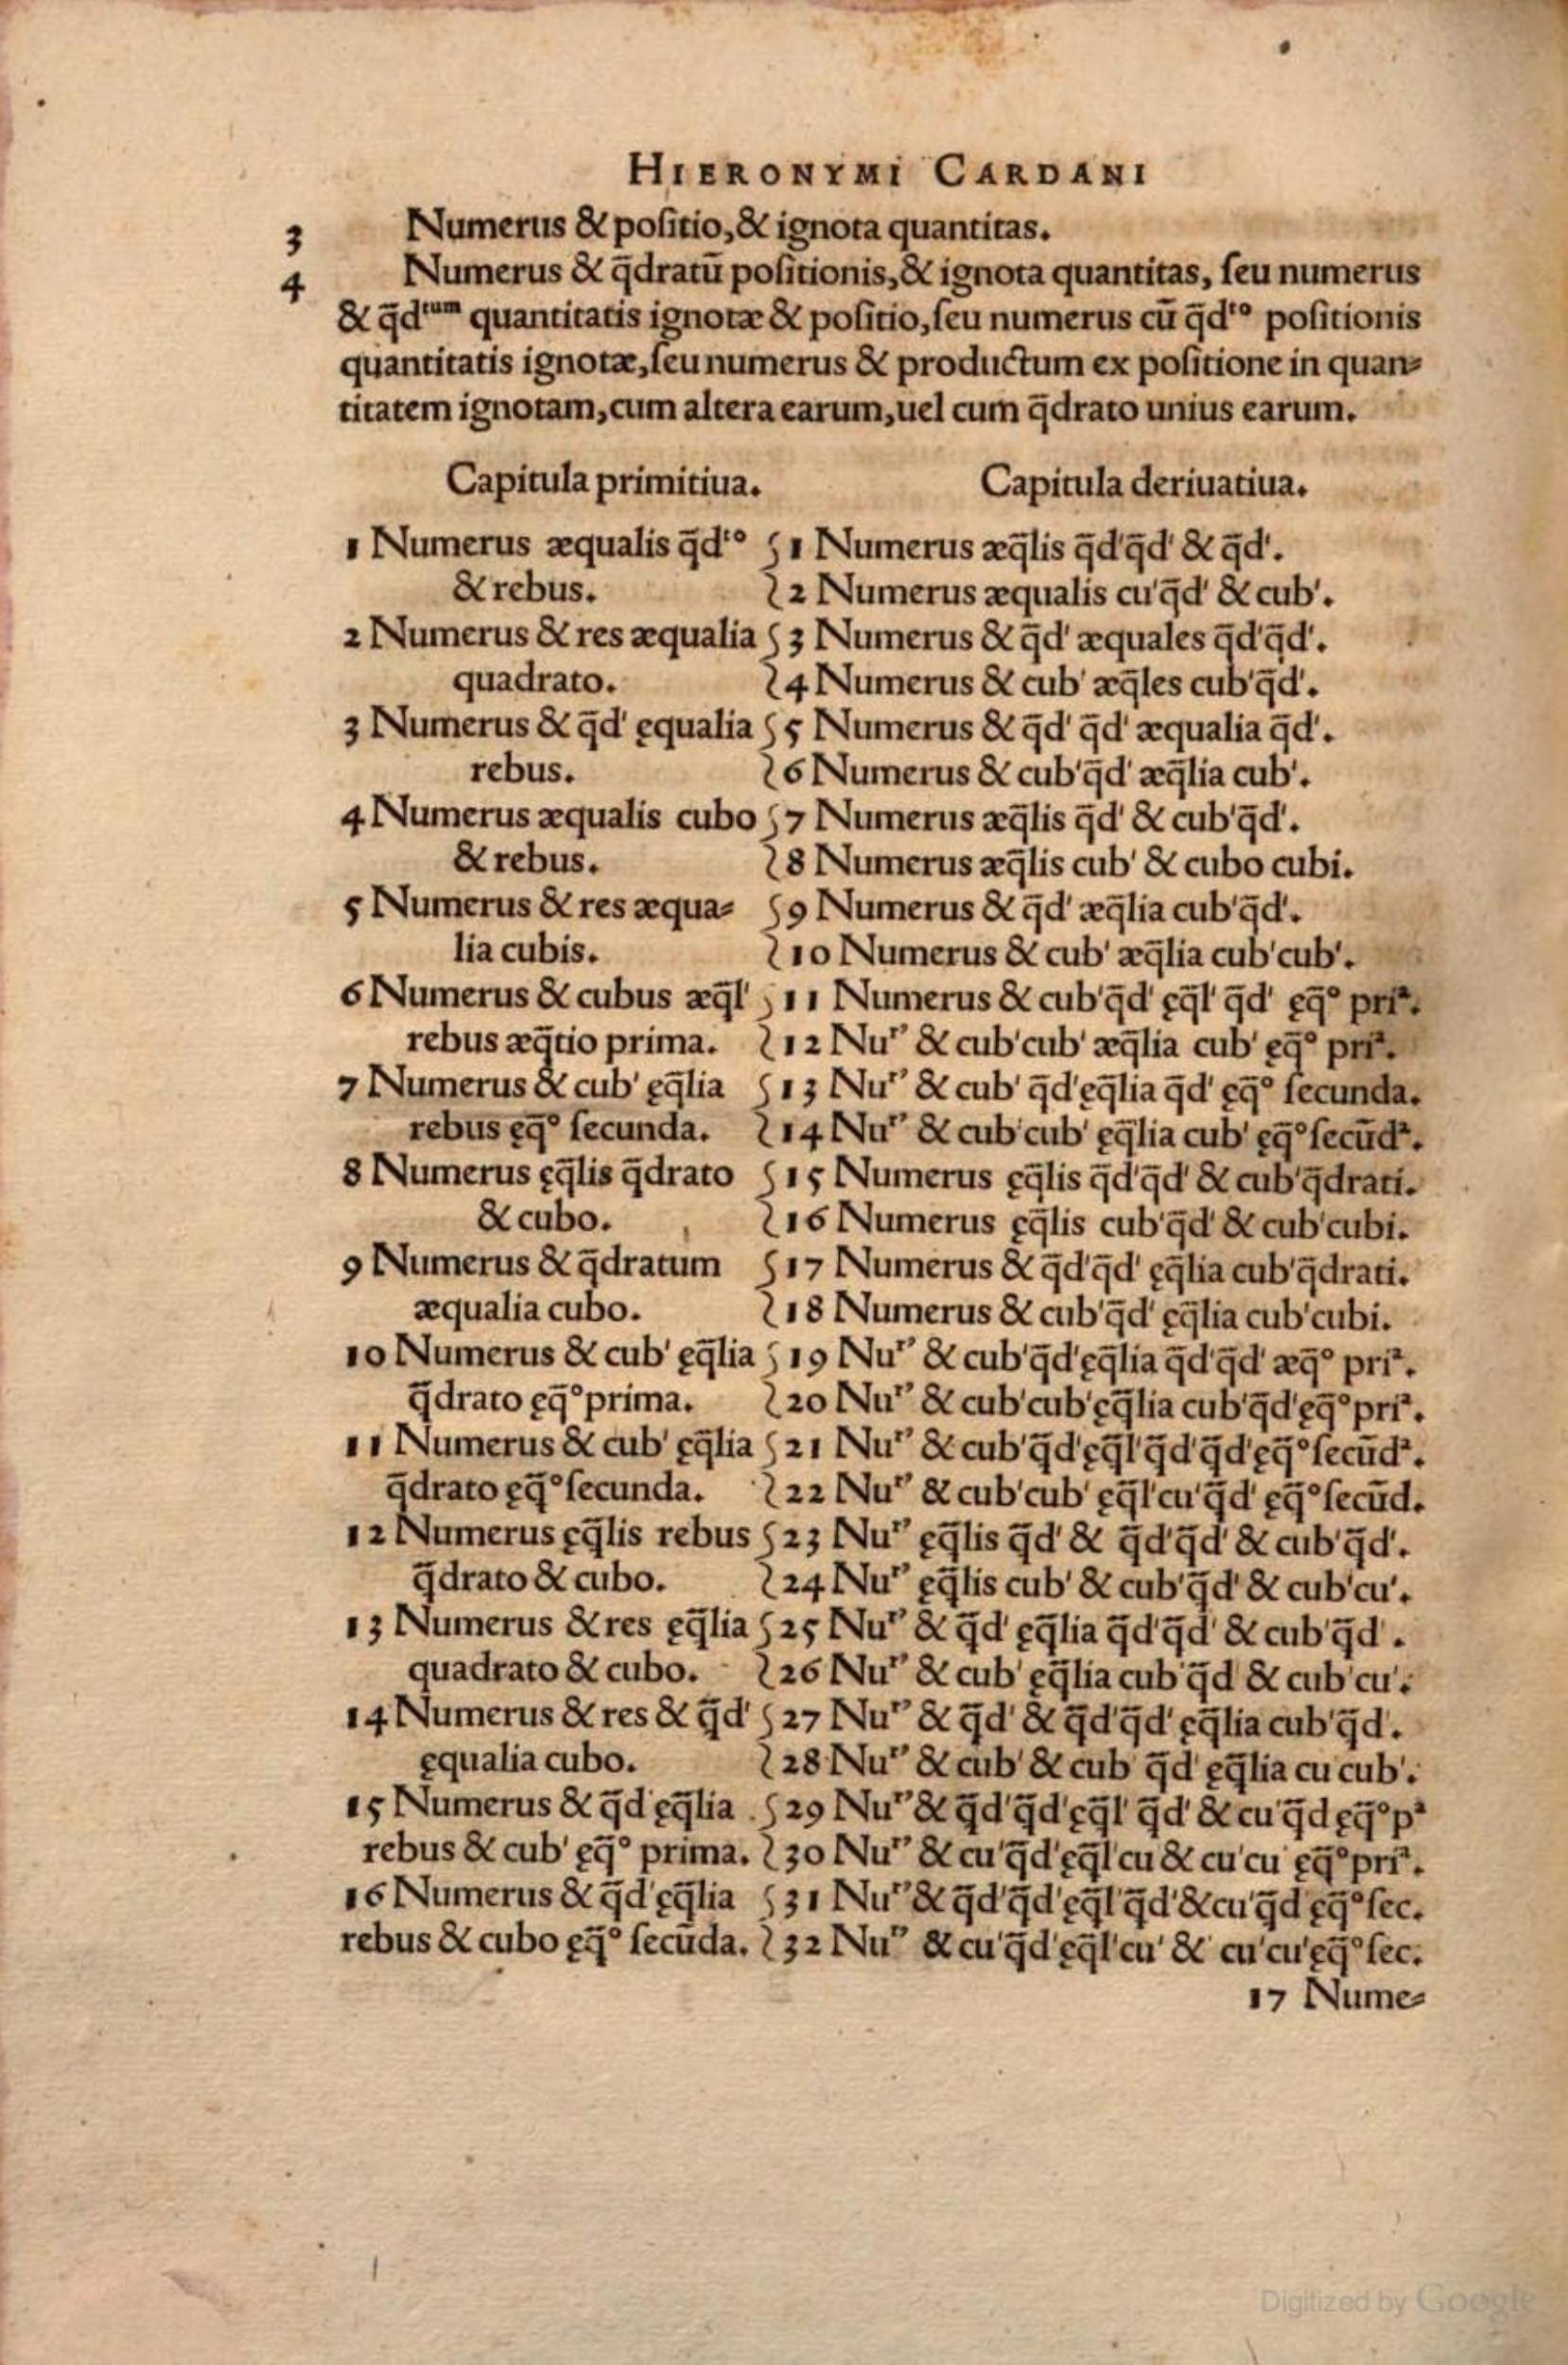 HIERONYMI CARDANI
3 Numerus & poſitio, & ignota quantitas.
4 Numerus & q̄dratū poſitionis, & ignota quantitas, ſeu numerus
& q̄dᵗᵘᵐ quantitatis ignotæ & poſitio, ſeu numerus cū q̄dᵗᵒ poſitionis
quantitatis ignotæ, ſeu numerus & productum ex poſitione in quan⸗
titatem ignotam, cum altera earum, uel cum q̄drato unius earum.
Capitula primitiua. Capitula deriuatiua.
1 Numerus æqualis q̄dᵗᵒ 1 Numerus æq̄lis q̄d'q̄d' & q̄d'.
& rebus. 2 Numerus æqualis cu'q̄d' & cub'.
2 Numerus & res æqualia 3 Numerus & q̄d' æquales q̄d'q̄d'.
quadrato. 4 Numerus & cub' æq̄les cub'q̄d'.
3 Numerus & q̄d' ęqualia 5 Numerus & q̄d' q̄d' æqualia q̄d'.
rebus. 6 Numerus & cub'q̄d' æq̄lia cub'.
4 Numerus æqualis cubo 7 Numerus æq̄lis q̄d' & cub'q̄d'.
& rebus. 8 Numerus æq̄lis cub' & cubo cubi.
5 Numerus & res æqua⸗ 9 Numerus & q̄d' æq̄lia cub'q̄d'.
lia cubis. 10 Numerus & cub' æq̄lia cub'cub'.
6 Numerus & cubus æq̄l' 11 Numerus & cub'q̄d' ęq̄l' q̄d' ęq̄ᵒ priᵃ.
rebus æq̄tio prima. 12 Nuʳ' & cub'cub' æq̄lia cub' ęq̄ᵒ priᵃ.
7 Numerus & cub' ęq̄lia 13 Nuʳ' & cub' q̄d'ęq̄lia q̄d' ęq̄ᵒ ſecunda.
rebus ęq̄ᵒ ſecunda. 14 Nuʳ' & cub'cub' ęq̄lia cub' ęq̄ᵒ ſecūdᵃ.
8 Numerus ęq̄lis q̄drato 15 Numerus ęq̄lis q̄d'q̄d' & cub'q̄drati.
& cubo. 16 Numerus ęq̄lis cub'q̄d' & cub'cubi.
9 Numerus & q̄dratum 17 Numerus & q̄d'q̄d' ęq̄lia cub'q̄drati.
æqualia cubo. 18 Numerus & cub'q̄d' ęq̄lia cub'cubi.
10 Numerus & cub' ęq̄lia 19 Nuʳ' & cub'q̄d'ęq̄lia q̄d'q̄d' æq̄ᵒ priᵃ.
q̄drato ęq̄ᵒ prima. 20 Nuʳ' & cub'cub'ęq̄lia cub'q̄d'ęq̄ᵒ priᵃ.
11 Numerus & cub' ęq̄lia 21 Nuʳ' & cub'q̄d'ęq̄l'q̄d'q̄d'ęq̄ᵒ ſecūdᵃ.
q̄drato ęq̄ᵒ ſecunda. 22 Nuʳ' & cub'cub' ęq̄l'cu'q̄d' ęq̄ᵒ ſecūd.
12 Numerus ęq̄lis rebus 23 Nuʳ' ęq̄lis q̄d' & q̄d'q̄d' & cub'q̄d'.
q̄drato & cubo. 24 Nuʳ' ęq̄lis cub' & cub'q̄d' & cub'cu'.
13 Numerus & res ęq̄lia 25 Nuʳ' & q̄d' ęq̄lia q̄d'q̄d' & cub'q̄d'.
quadrato & cubo. 26 Nuʳ' & cub' ęq̄lia cub'q̄d & cub'cu'.
14 Numerus & res & q̄d' 27 Nuʳ' & q̄d' & q̄d'q̄d' ęq̄lia cub'q̄d'.
ęqualia cubo. 28 Nuʳ' & cub' & cub' q̄d' ęq̄lia cu cub'.
15 Numerus & q̄d ęq̄lia 29 Nuʳ' & q̄d'q̄d'ęq̄l' q̄d' & cu'q̄d ęq̄ᵒ pᵃ
rebus & cub' ęq̄ᵒ prima. 30 Nuʳ' & cu'q̄d'ęq̄l'cu & cu'cu' ęq̄ᵒ priᵃ.
16 Numerus & q̄d'ęq̄lia 31 Nuʳ' & q̄d'q̄d'ęq̄l'q̄d'&cu'q̄d ęq̄ᵒ ſec.
rebus & cubo ęq̄ᵒ ſecūda. 32 Nuʳ' & cu'q̄d'ęq̄l'cu' & cu'cu'ęq̄ᵒ ſec.
17 Nume⸗
Digitized by Google